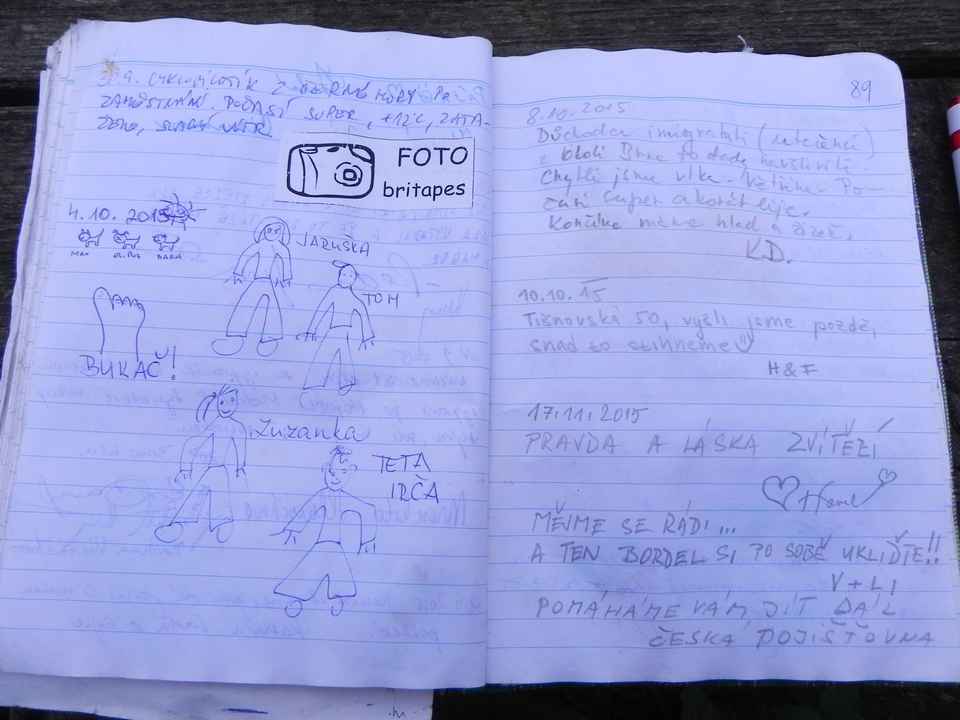 30.9. CYKLOVÝLETÍK Z ČERNÉ HORY PO
ZAMĚSTNÁNÍ. POČASÍ SUPER, +12°C, ZATA-
ŽENO, SLABÝ VÍTR
FOTO
britapes
4.10.2015
MAX
DARA
JARUŠKA
TOM
BUKAČ!
Zuzanka
TETA
IRČA
89
8.10.2015
Důchodci imigranti (utečenci)
z okolí Brna to tady navštívili.
Chytli jsme vlka. Většina. Po-
časí super akorát lije.
Končíme máme hlad a žízeň.
K.D.
10.10.15
Tišnovská 50, vyšli jsme pozdě,
snad to stihneme
H & F
17.11.2015
PRAVDA A LÁSKA ZVÍTĚZÍ
Havel
MĚJME SE RÁDI...
A TEN BORDEL SI PO SOBĚ UKLIĎTE!!
V + LI
POMÁHÁME VÁM JÍT DÁL
ČESKÁ POJIŠŤOVNA